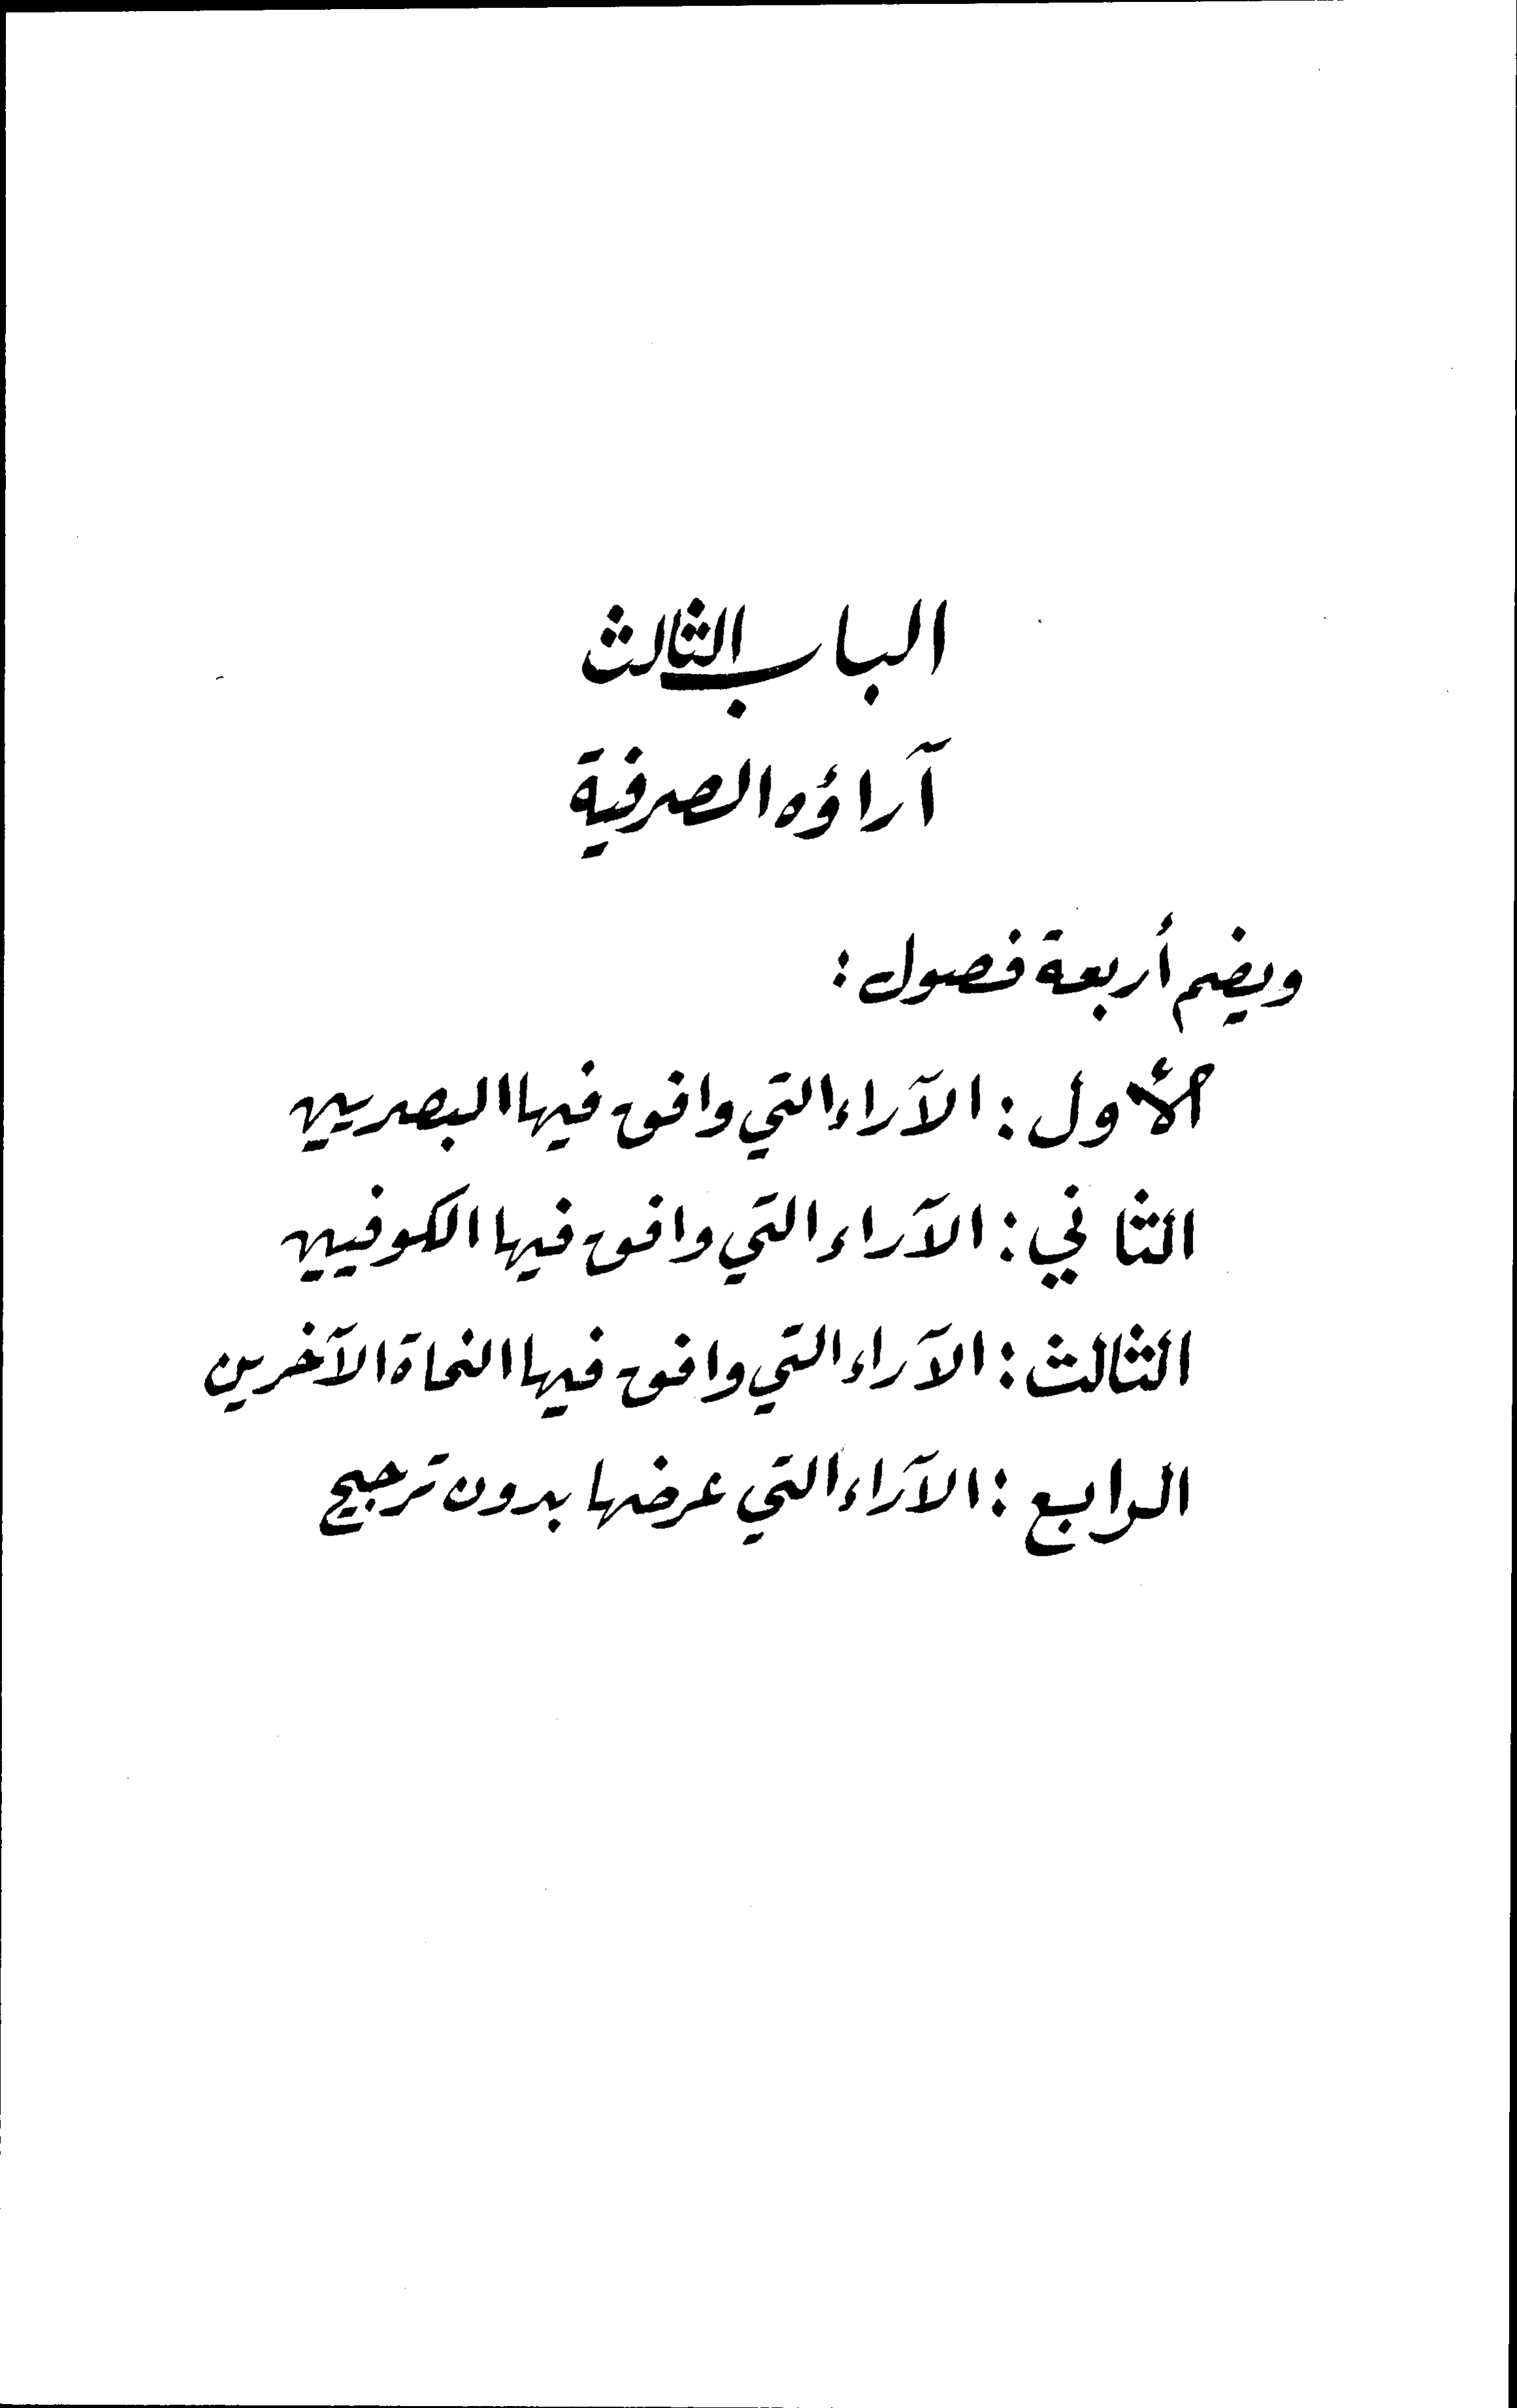 الباب الثالث
آراؤه الصرفية
ويضم أربعة فصول :
الأول : الآراء التي وافق فيها البصريين
الثاني : الآراء التي وافق فيها الكوفيين
الثالث : الآراء التي وافق فيها النحاة الآخرين
الرابع : الآراء التي عرضها بدون ترجيح